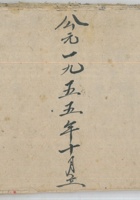 公元一九五五年十月立